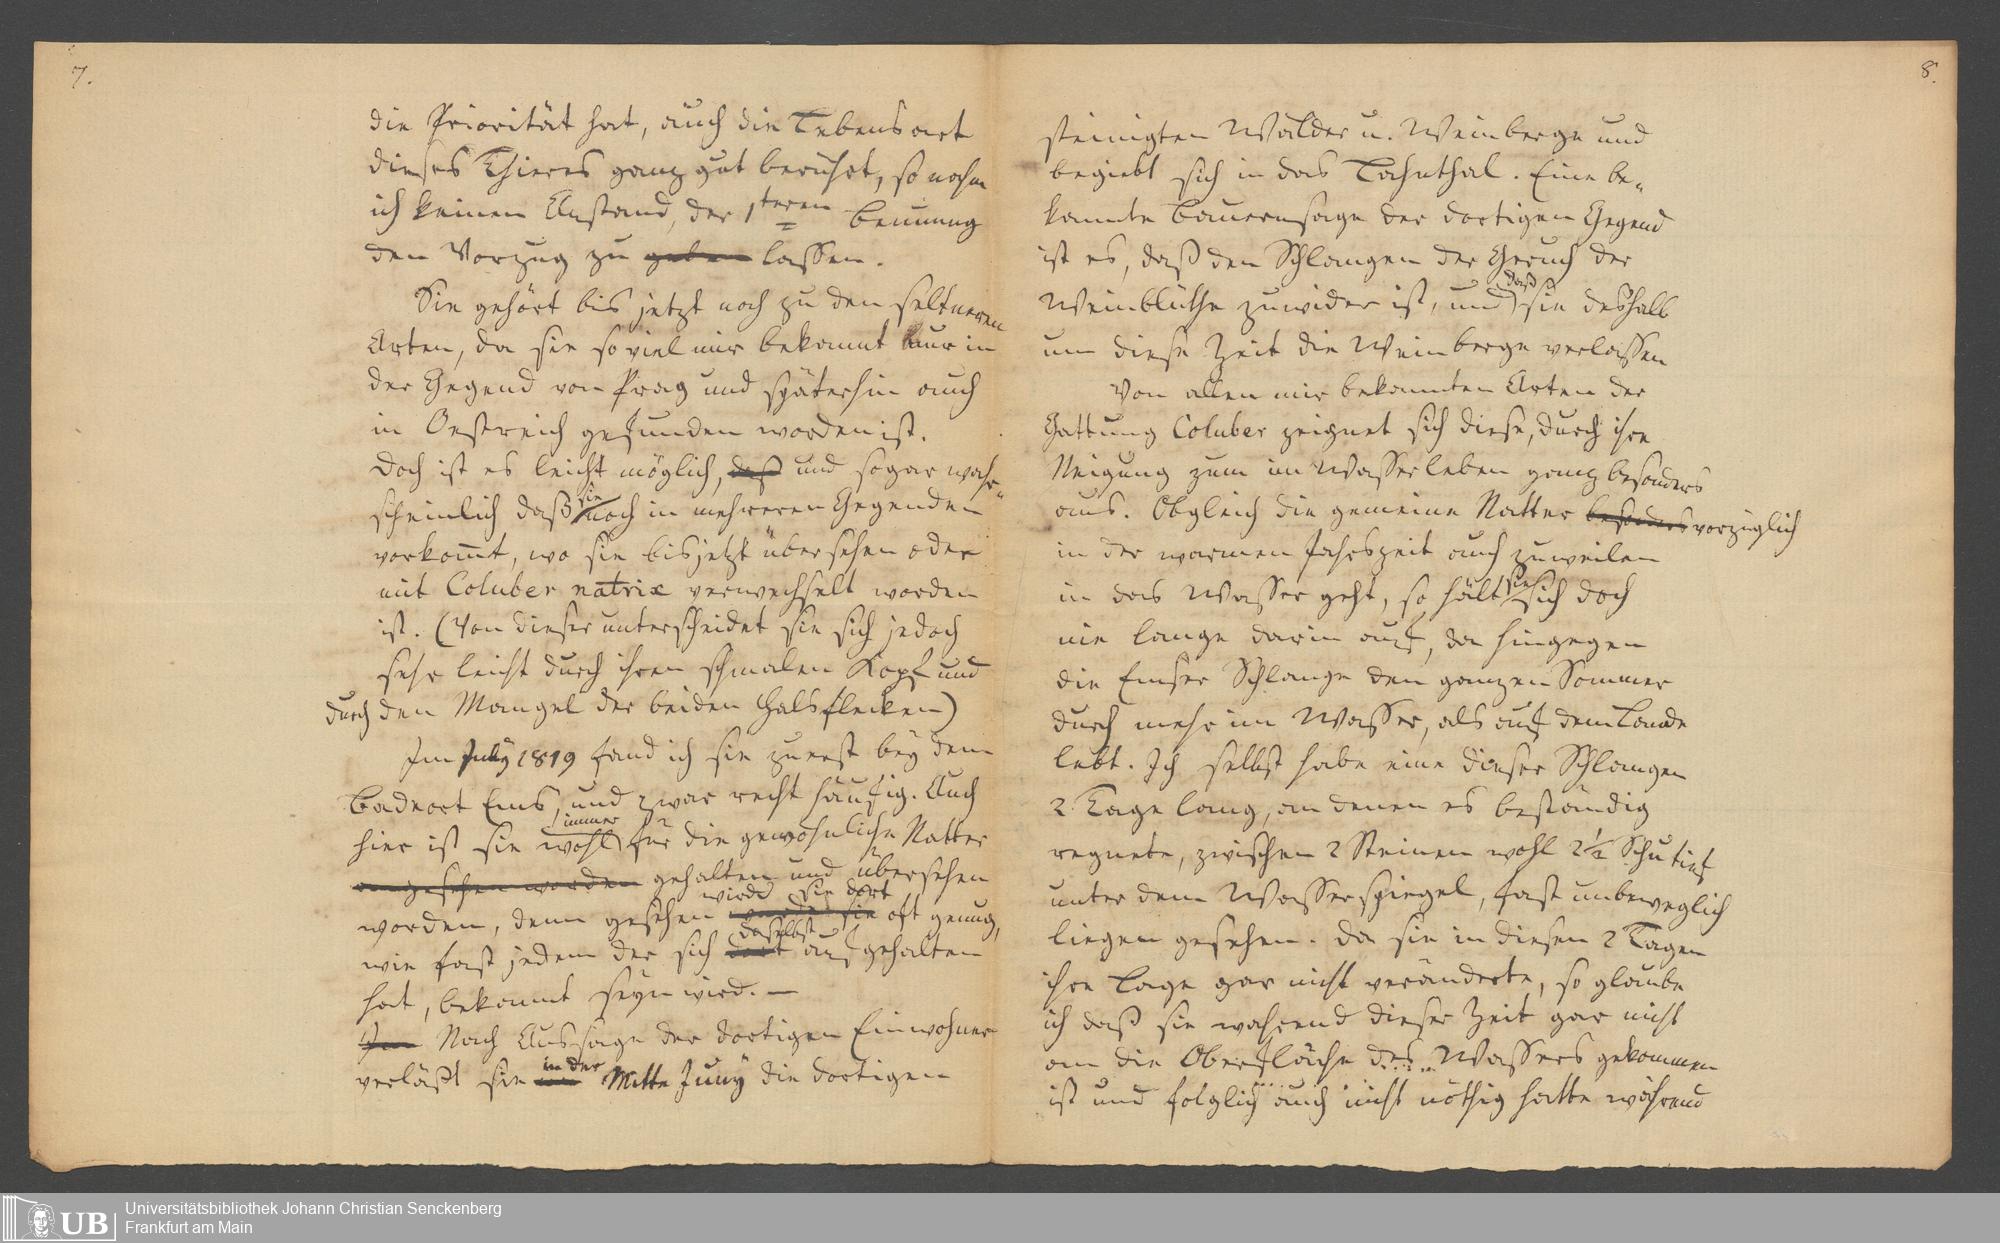 7.
die Priorität hat, auch die Lebensart
dieses Thieres ganz gut berührt, so nahm
ich keinen Anstand, der 1teren Benennung
den Vorzug zu geben lassen.
Sie gehört bis jetzt noch zu den seltneren
Arten, da sie so viel mir bekannt nur in
der Gegend von Prag und späterhin auch
in Oestreich gefunden worden ist.
Doch ist es leicht möglich, daß und sogar wahr-
scheinlich daß sie noch in mehreren Gegenden
vorkommt, wo sie bis jetzt übersehen oder
mit Coluber natrix verwechselt worden
ist. (Von dieser unterscheidet sie sich jedoch
sehr leicht durch ihren schmalen Kopf und
durch den Mangel der beiden Halsflecken)
Im July 1819 fand ich sie zuerst bey dem
Badeort Ems, und zwar recht häufig. Auch
hier ist sie wohl immer für die gewöhnliche Natter
angesehen worden gehalten und übersehen
worden, denn gesehen wird sie dort oft genug,
wie fast jedem der sich dort daselbst aufgehalten
hat, bekannt seyn wird. —
Im Nach Aussage der dortigen Einwohner
verläßt sie in der Mitte Juny die dortigen
8.
steinigten Wälder u. Weinberge und
begiebt sich in das Lahnthal. Eine be-
kannte Bauernsage der dortigen Gegend
ist es, daß den Schlangen der Geruch der
Weinblüthe zuwider ist, und daß sie deshalb
um diese Zeit die Weinberge verlassen
Von allen mir bekannten Arten der
Gattung Coluber zeignet sich diese, durch ihre
Neigung zum im Wasserleben ganz besonders
aus. Obgleich die gemeine Natter besonders vorzüglich
in der warmen Jahrszeit auch zuweilen
in das Wasser geht, so hält sie sich doch
nie lange darin auf, da hingegen
die Emser Schlange den ganzen Sommer
durch mehr im Wasser, als auf dem Lande
lebt. Ich selbst habe eine dieser Schlangen
2 Tage lang, an denen es beständig
regnete, zwischen 2 Steinen wohl 2½ Schu tief
unter dem Wasserspiegel, fast unbeweglich
liegen gesehen. Da sie in diesen 2 Tagen
ihre Lage gar nicht veränderte, so glaube
ich daß sie während dieser Zeit gar nicht
an die Oberfläche des Wassers gekommen
ist und folglich auch nicht nöthig hatte während
UB
Universitätsbibliothek Johann Christian Senckenberg
Frankfurt am Main